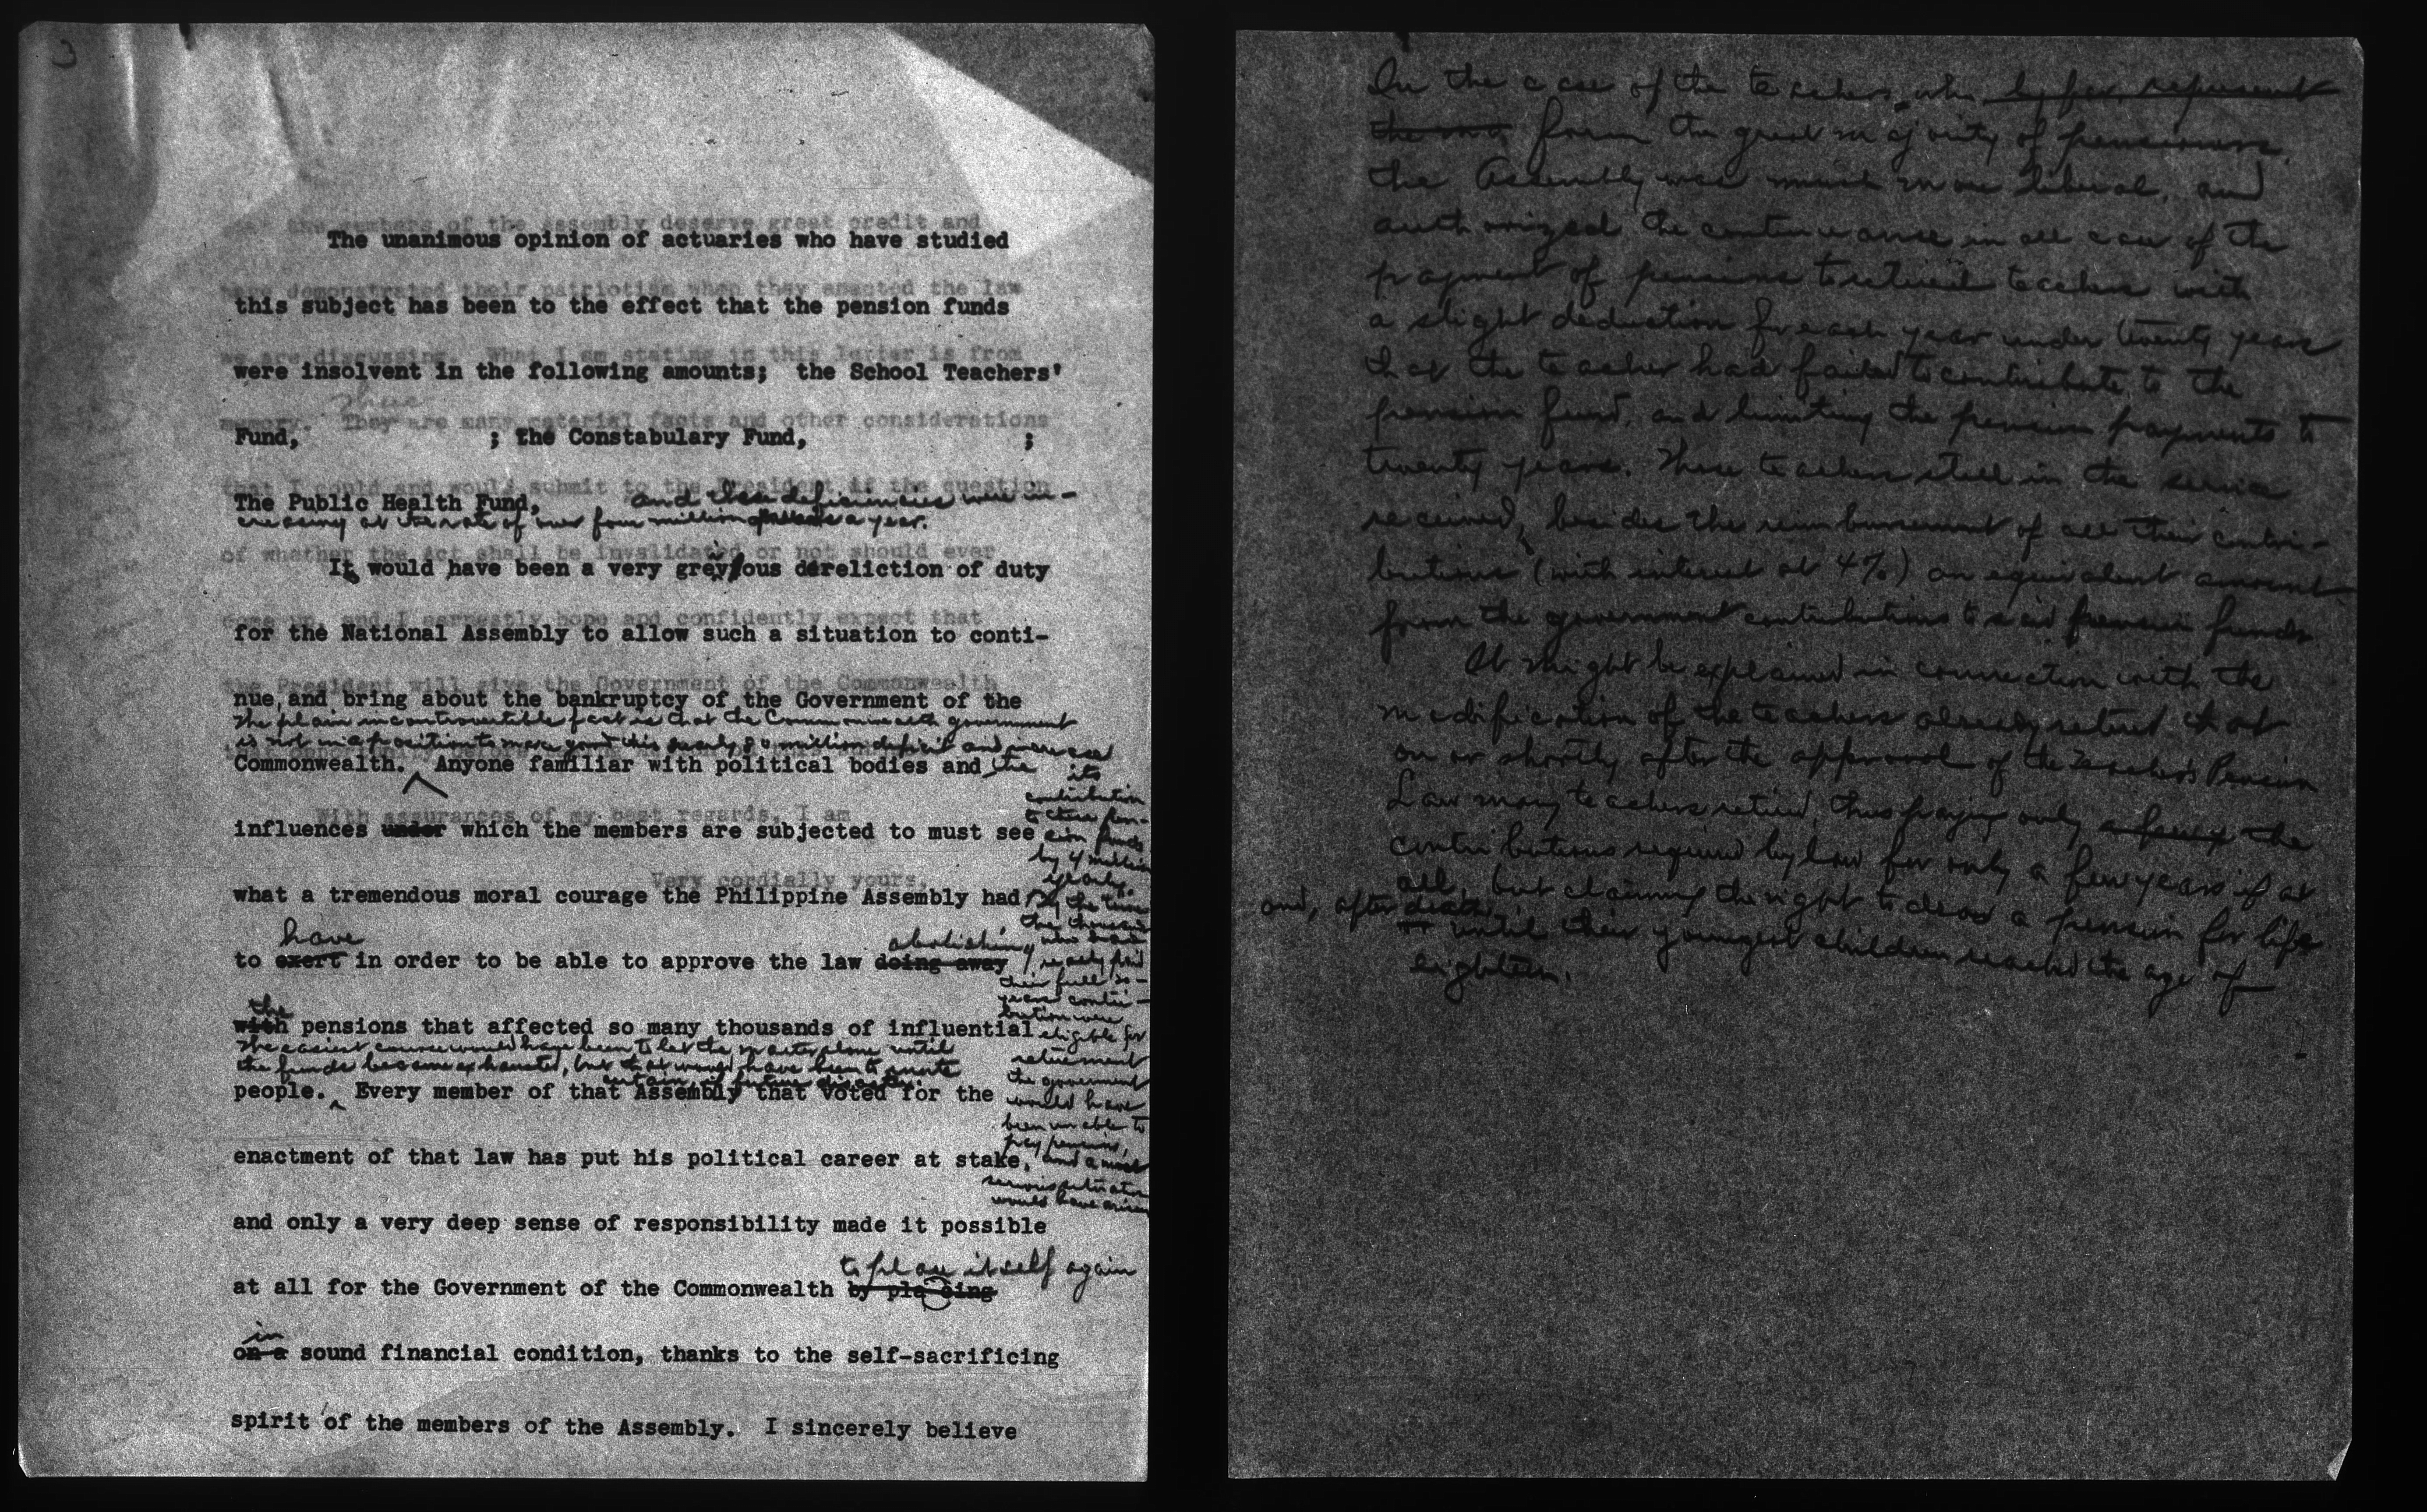 3
The unanimous opinion of actuaries who have studied
this subject has been to the effect that the pension funds
were insolvent in the following amounts; the School Teachers'
Fund, ; the Constabulary Fund, ;
The Public Health Fund, and these deficiencies were in-
creasing at the rate of over four million a year.
It would have been a very grevious dereliction of duty
for the National Assembly to allow such a situation to conti-
nue, and bring about the bankruptcy of the Government of the
The plain incontrovertible fact is that the Commonwealth government
is not in a position to make good this nearly 80 million deficit and increase
Commonwealth. Anyone familiar with political bodies and the
its
contribution
to these pen-
sion funds
by 4 million
yearly.
By the time
the thousands
who had
already paid
their full 20-
years contri-
bution were
eligible for
retirement
the government
would have
been unable to
pay pensions,
and a most
serious situation
would have arisen
influences under which the members are subjected to must see
what a tremendous moral courage the Philippine Assembly had
have
to exert in order to be able to approve the law doing away
abolishing
the
with pensions that affected so many thousands of influential
The easiest course would have been to let the matter alone until
the funds became exhausted, but that would have been to invite
certain future disaster.
people. Every member of that Assembly that voted for the
enactment of that law has put his political career at stake,
and only a very deep sense of responsibility made it possible
to place itself again
at all for the Government of the Commonwealth by placing
in
on a sound financial condition, thanks to the self-sacrificing
spirit of the members of the Assembly. I sincerely believe
In the case of the teachers, who by far represent
the ma form the great majority of pensioners,
the Assembly was much more liberal, and
authorized the continuance in all case of the
payment of pensions to retired teachers with
a slight deduction for each year under twenty years
that the teacher had failed to contribute to the
pension fund, and limiting the pension payments to
twenty years. Those teachers still in the service
received, besides the reimbursement of all their contri-
butions (with interest at 4%) an equivalent amount
from the government contributions to said pension funds.
It might be explained in connection with the
modification of the teachers already retired that
on or shortly after the approval of the Teachers Pension
Law many teachers retired, thus paying only a few of the
contributions required by law for only a few years if at
all, but claiming the right to draw a pension for life
and, after death
until their youngest children reached the age of
eighteen.